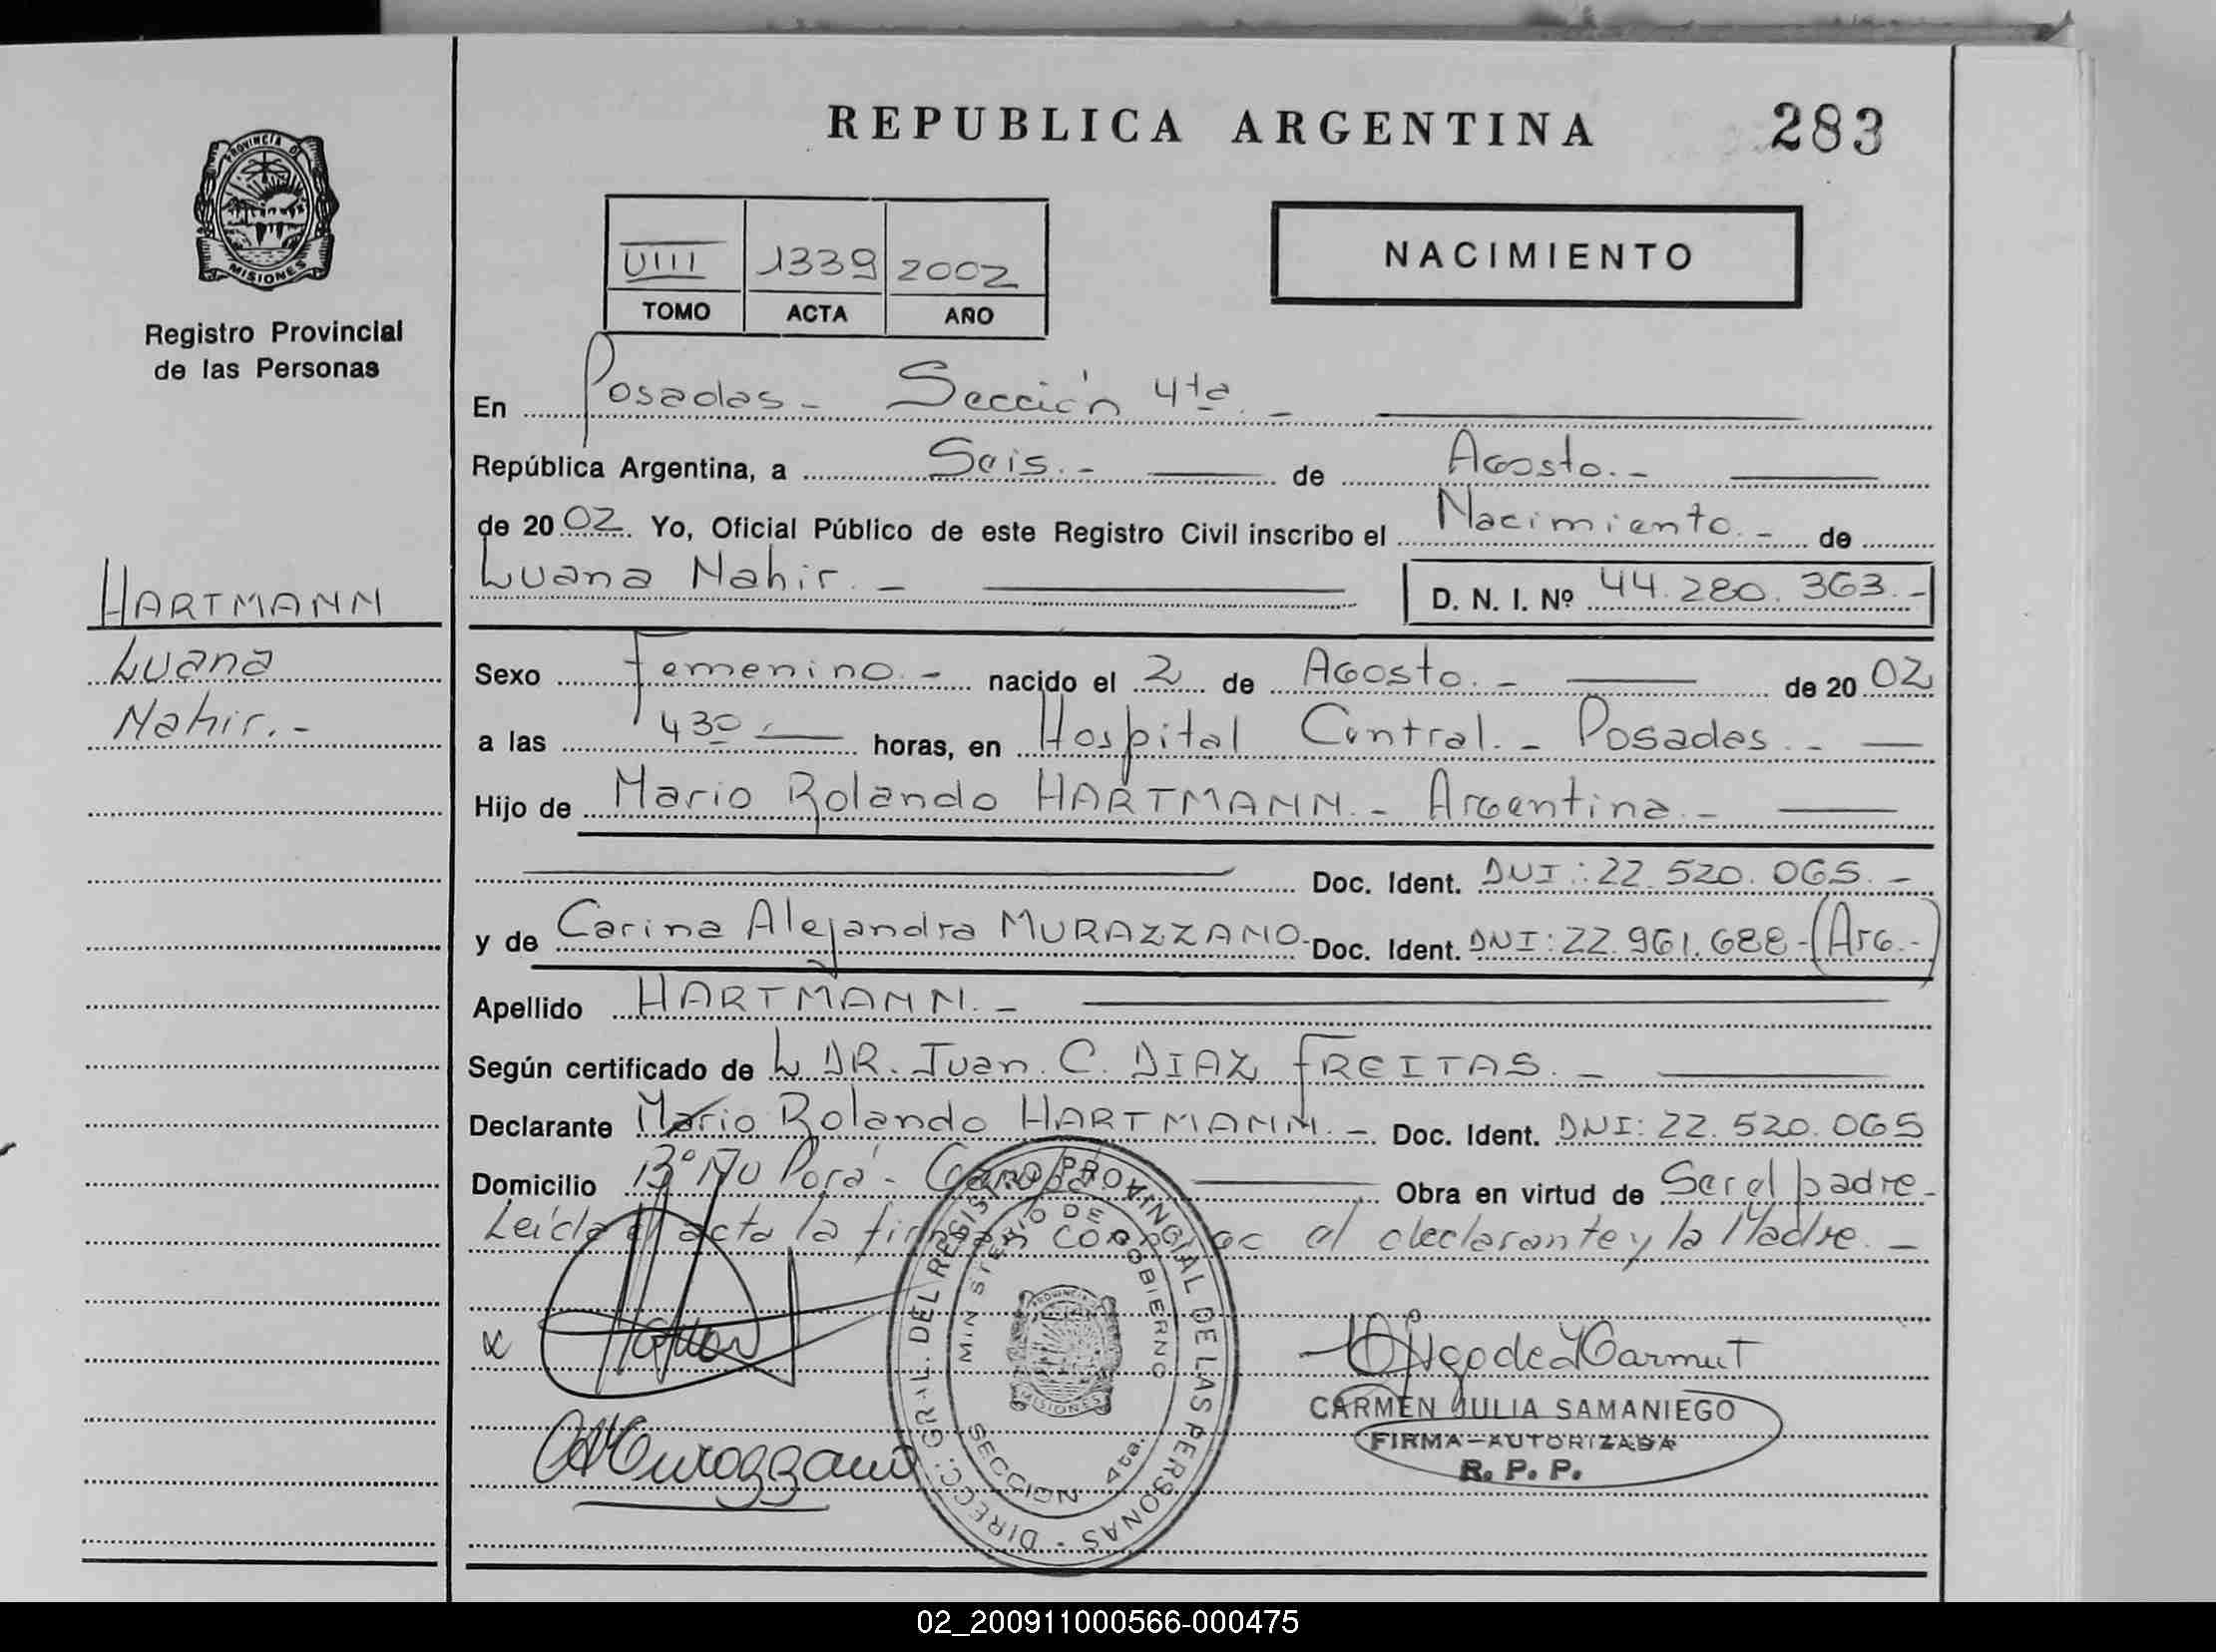 REPUBLICA ARGENTINA
283
PROVINCIA DE
MISIONES
Registro Provincial
de las Personas
VIII 1339 2002
TOMO ACTA AÑO
NACIMIENTO
En Posadas - Sección 4ta. -
República Argentina, a Seis. - de Agosto. -
de 2002 Yo, Oficial Público de este Registro Civil inscribo el Nacimiento. - de
Luana Nahir. - D. N. I. Nº 44.280.363. -
HARTMANN
Luana
Nahir. -
Sexo Femenino. - nacido el 2 de Agosto. - de 2002
a las 430 horas, en Hospital Central. - Posadas. -
Hijo de Mario Rolando HARTMANN. - Argentina. -
Doc. Ident. DNI: 22.520.065. -
y de Carina Alejandra MURAZZANO. Doc. Ident. DNI: 22.961.688 - (Arg. -)
Apellido HARTMANN. -
Según certificado de L DR. Juan C. DIAZ FREITAS. -
Declarante Mario Rolando HARTMANN. - Doc. Ident. DNI: 22.520.065
Domicilio Bº Ñu Porá - Garupá Obra en virtud de Ser el padre -
Leída el acta la firman conmigo el declarante y la Madre. -
DIRECC. GRAL. DEL REGISTRO PROVINCIAL DE LAS PERSONAS -
MINISTERIO DE GOBIERNO
PROVINCIA DE
MISIONES
SECCION 4ta.
CAMurazzano
CARMEN JULIA SAMANIEGO
FIRMA - AUTORIZADA
R. P. P.
02_200911000566-000475